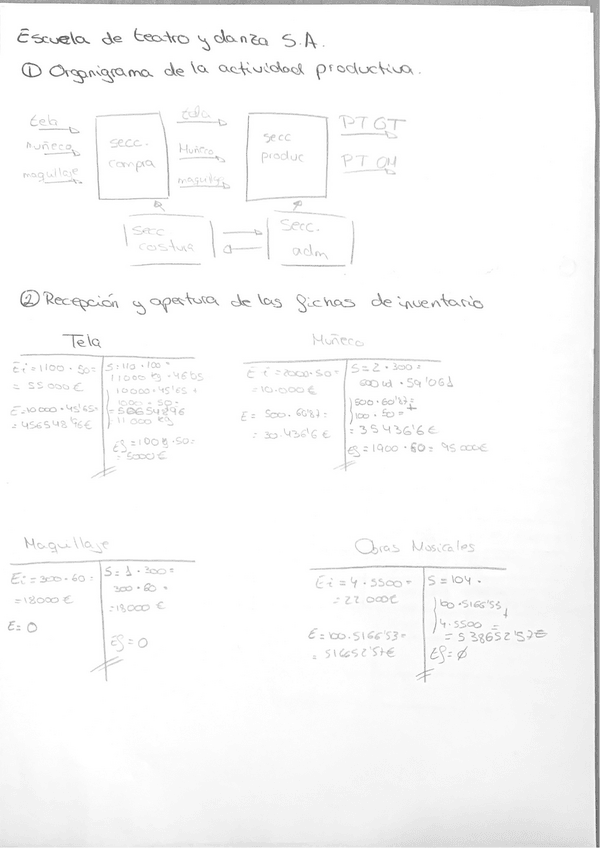 Escuela de teatro y danza S.A.
① Organigrama de la actividad productiva.
tela
muñeco
maquillaje
secc.
compra
tela
Muñeco
maquillaje
secc
produc
PT OT
PT OM
secc.
costura
secc.
adm
② Recepción y apertura de las fichas de inventario
Tela
Ei = 1100 · 50 =
= 55000 €
E = 10000 · 45'65 =
= 456548'76 €
S = 110 · 100 =
11000 kg · 46'05
10000 · 45'65 +
1000 · 50 =
= 506548'76
11000 kg
Ef = 100 kg · 50 =
= 5000 €
Muñeco
Ei = 2000 · 50 =
= 10.000 €
E = 500 · 60'87 =
= 30.436'6 €
S = 2 · 300 =
600 ud · 59'061
500 · 60'87 +
100 · 50 =
= 35436'6 €
Ef = 1900 · 50 = 95000 €
Maquillaje
Ei = 300 · 60 =
= 18000 €
E = 0
S = 1 · 300 =
300 · 60 =
= 18000 €
Ef = 0
Obras Musicales
Ei = 4 · 5500 =
= 22.000 €
E = 100 · 5166'53 =
= 516652'57 €
S = 104 ·
100 · 5166'53 +
4 · 5500 =
= 538652'57 €
Ef = ∅